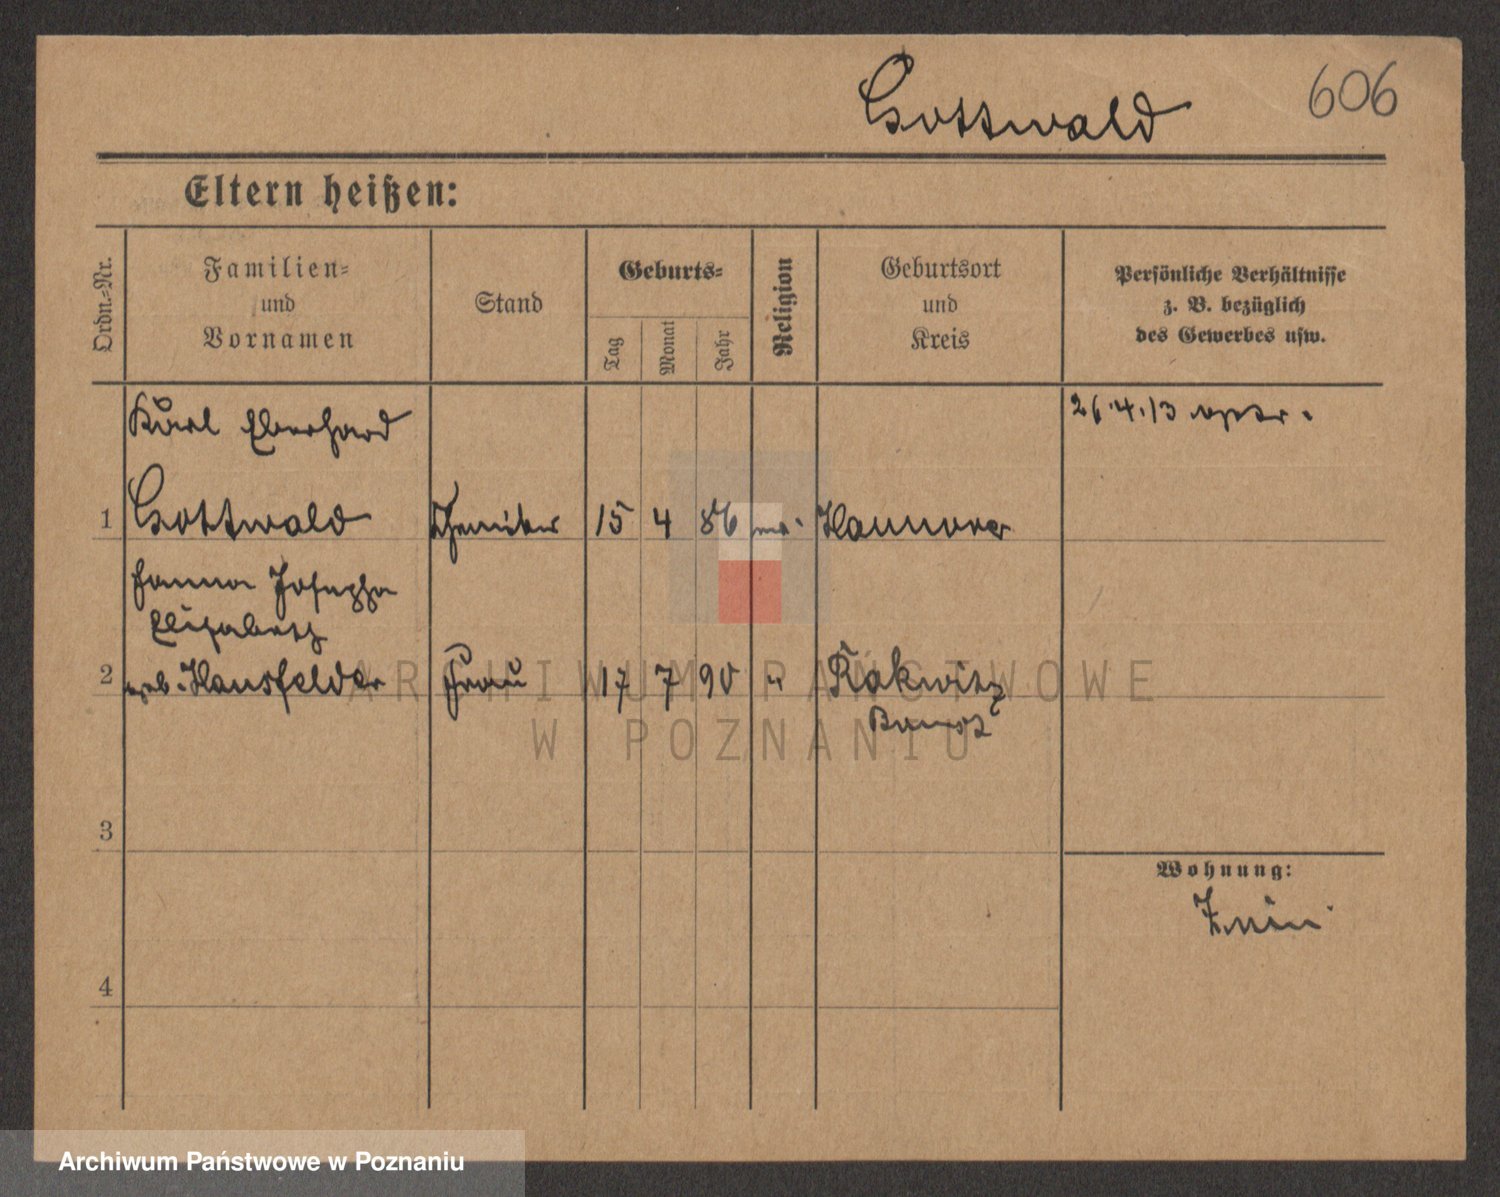 Gottwald 606
Eltern heißen:
Ordn.-Nr.
Familien-
und
Vornamen
Stand
Geburts-
Tag
Monat
Jahr
Religion
Geburtsort
und
Kreis
Persönliche Verhältnisse
z. B. bezüglich
des Gewerbes usw.
Karl Eberhard 26.4.13
1 Gottwald Chemiker 15 4 86 Hannover
Hanna Josepha
Elisabeth
2 geb. Hansfelder Frau 17 7 90 " Rakwitz
Bomst
3
Wohnung:
Znin
4
ARCHIWUM PAŃSTWOWE
W POZNANIU
Archiwum Państwowe w Poznaniu